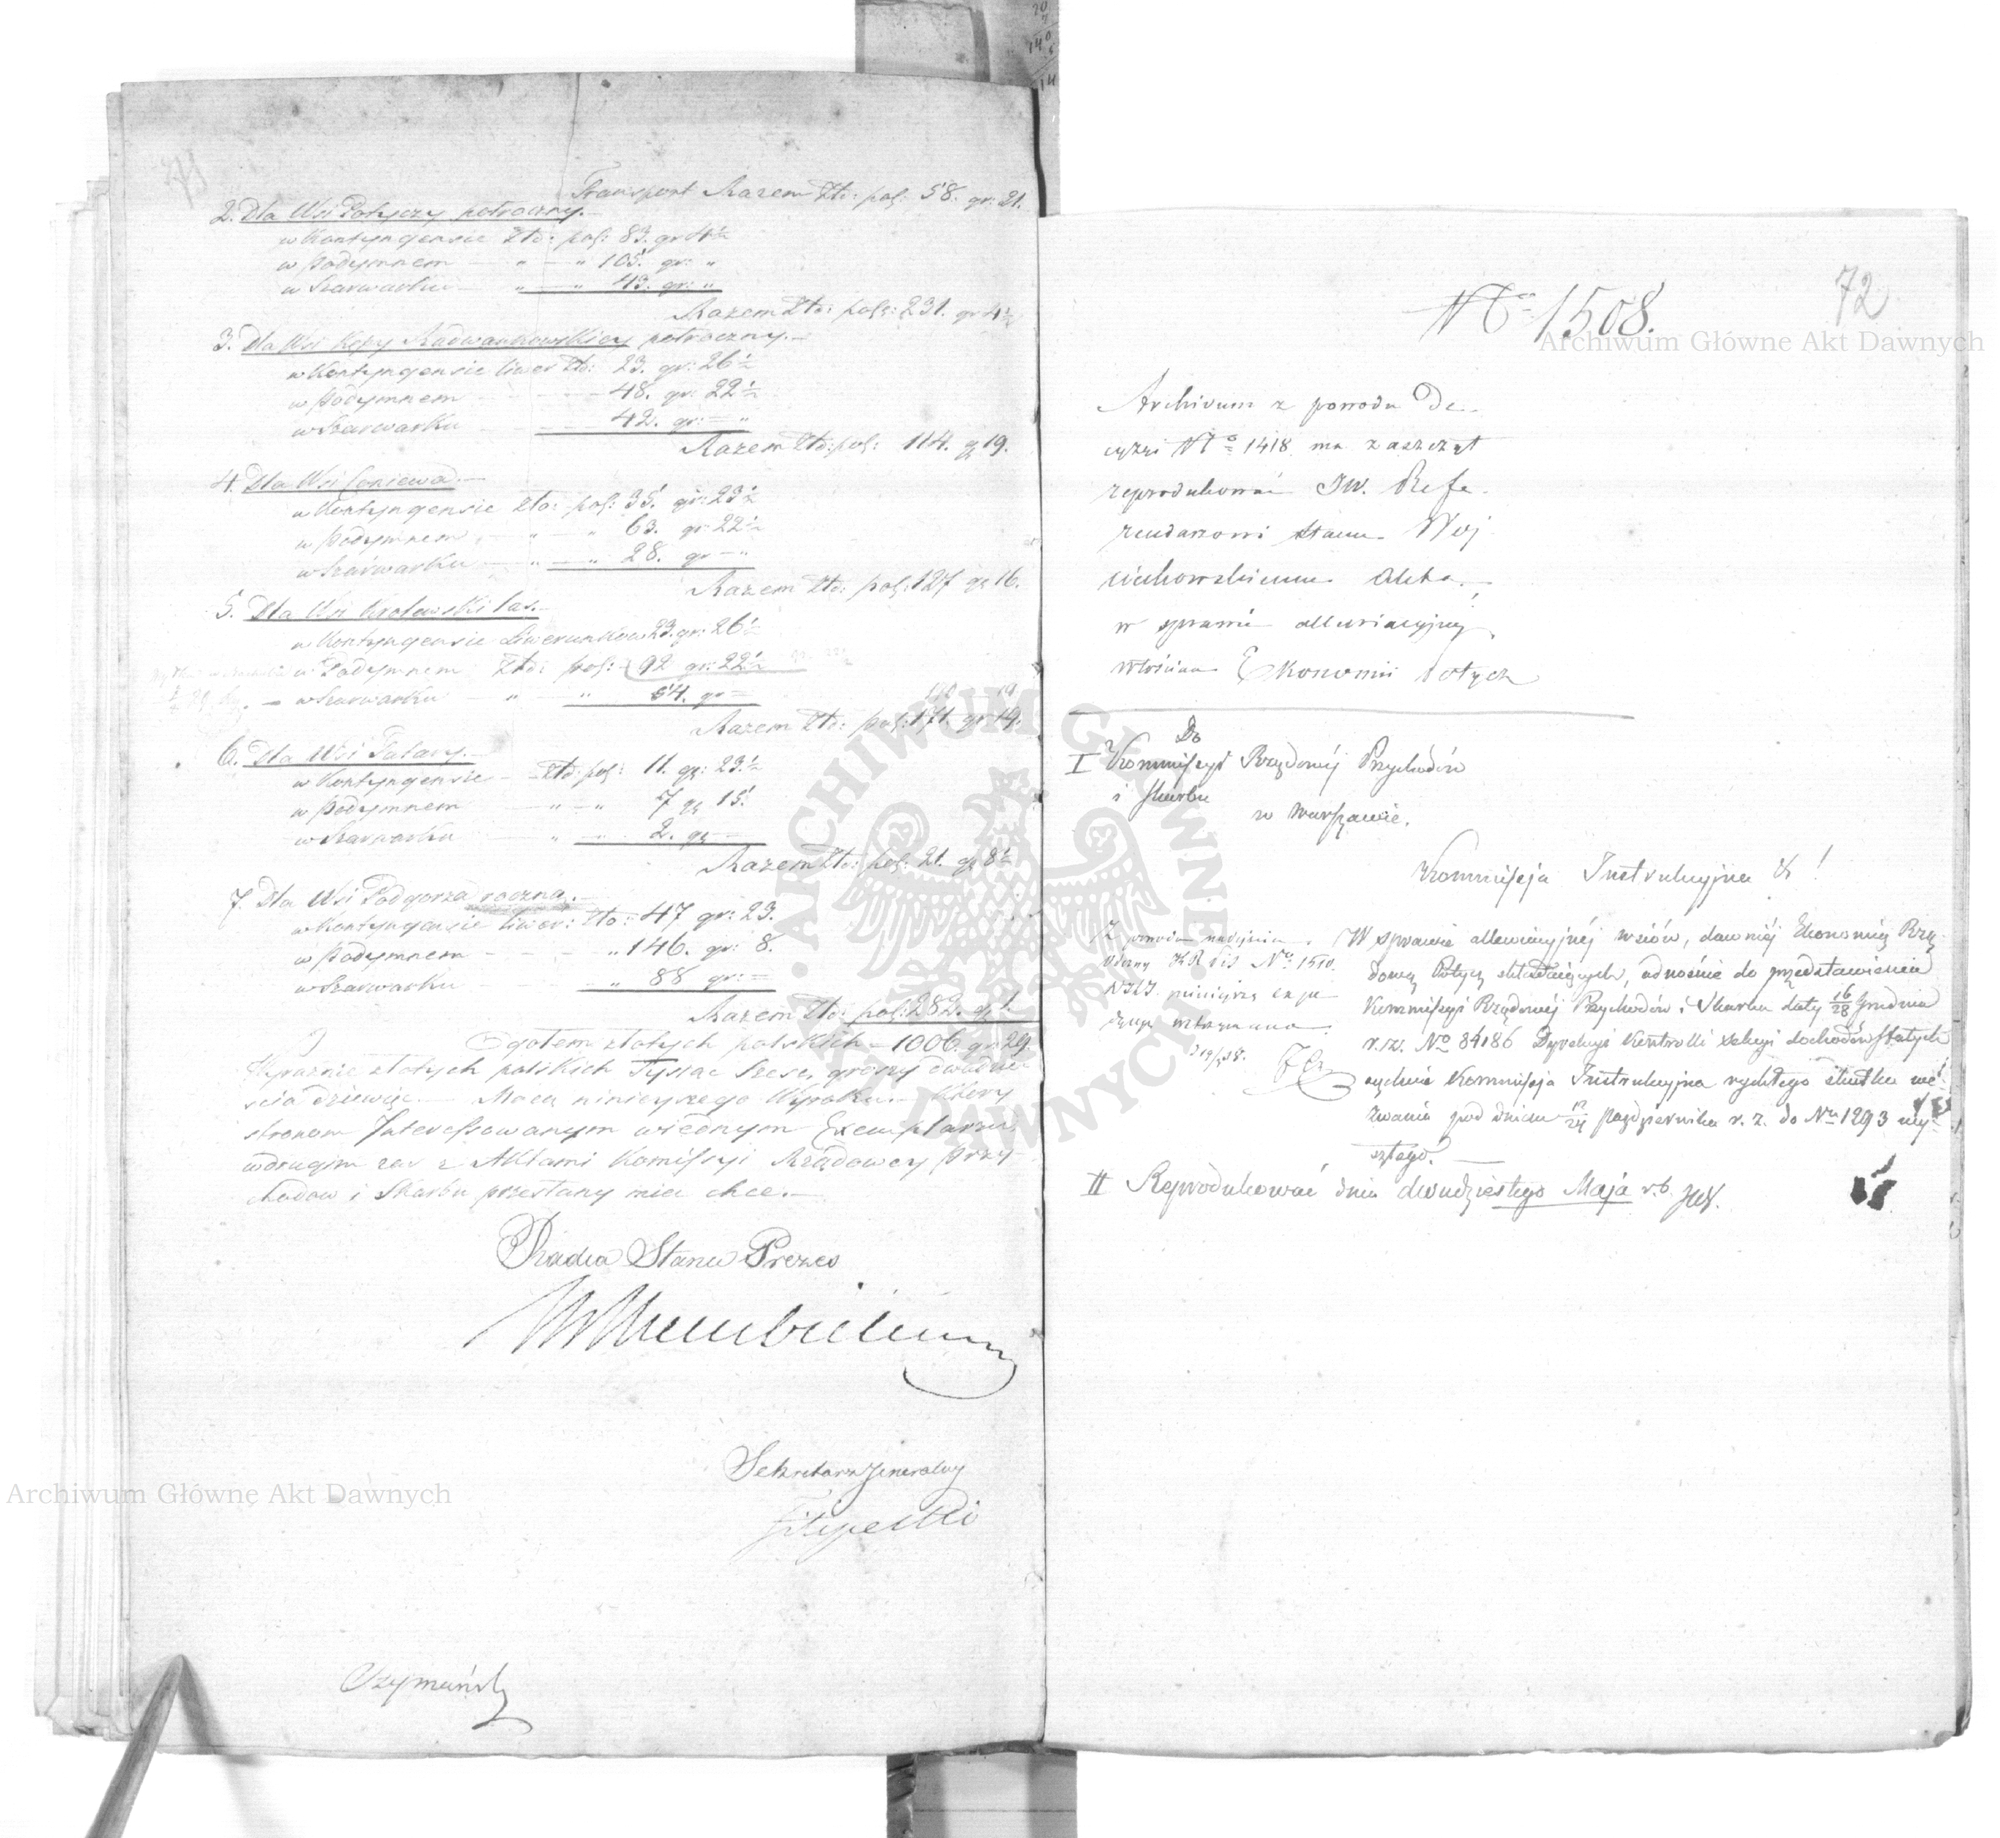 Transport Razem Złt: pol: 58. gr: 21.
2. Dla Wsi Potyczy potroczny.
w Kontyngensie Złt: pol: 83. gr 4½
w podymnem — " — " 105. gr: "
w Szarwarku — " — " 43. gr: "
Razem Złt: pols: 231. gr 4½
3. Dla Wsi Kępy Radwankowskiey potroczny.
w Kontyngensie liwer Złt: 23. gr: 26½
w podymnem 48. gr: 22½
w Szarwarku 42. gr: — "
Razem Złt: pol: 114. gr 19.
4. Dla Wsi Coniewa.
w Kontyngensie Złt: pol: 35. gr: 23½
w podymnem — " — " 63. gr 22½
w Szarwarku — " — " 28. gr — "
Razem Złt: pol: 127 gr 16.
5. Dla Wsi Krolewski las.
w Kontyngensie Liwerunkow 23. gr: 26½
w Podymnem Złt: pol: 92 gr: 22½
w Szarwarku — " — " 54. gr —
Razem Złt: pol: 171. gr 19.
6. Dla Wsi Tatary.
w Kontyngensie — Złt: pol: 11. gr: 23½
w podymnem — " — " 7 gr 15.
w Szarwarku — " — " 2. gr —
Razem Złt: pol: 21. gr 8½
7. Dla Wsi Podgorza roczna.
w Kontyngensie liwer: Złt: 47 gr: 23.
w podymnem — " 146. gr: 8.
w Szarwarku — " 88 gr: —
Razem Złt: pol: 282. gr 1.
Ogołem złotych polskich — 1006. gr 29
Wyraznie złotych polskich Tysiąc Szesć, groszy dwadzie
scia dziewięc. — Mocą ninieyszego Wyroku. — Ktory
stronom Interessowanym w iednym Exemplarzu,
w drugim zas z Aktami Komissyi Rządowey Przy-
chodow i Skarbu przesłany miec chce. —
Radca Stanu Prezes
Sekretarz Jeneralny
Filipecki
Szymański
72
No 1508.
Archiwum Główne Akt Dawnych
Archivum z powodu De-
cyzyi No 1418 ma zaszczyt
reprodukować JW. Refe-
rendarzowi Stanu Woj
ciechowskiemu Akta
w sprawie alluviacyjnej
Włościan Ekonomii Potycz
Do
I Kommissyi Rządowej Przychodów
i Skarbu
w Warszawie.
Kommissja Instrukcyjna &!
Z powodu nadejścia
odezwy KRPiS No 1510.
niniejsza expe
dycya wstrzymana
W sprawie alluwiacyjnéj wsiów, dawniéj Ekonomią Rzą-
dową Potycz składających, odnośnie do przedstawienia
Kommissyi Rządowéj Przychodów i Skarbu daty 16/28 Grudnia
r. z. No 84186 Dyrekcyi Kontrolli sekcyi dochodów stałych
żąda Kommissja Instrukcyjna rychłego skutku we-
zwania pod dniem 12/24 października r. z. do No 1293 wy
szłego.
II Reprodukować dnia dwudziestego Maja r. b.
Archiwum Główne Akt Dawnych
ARCHIWUM GŁÓWNE AKT DAWNYCH